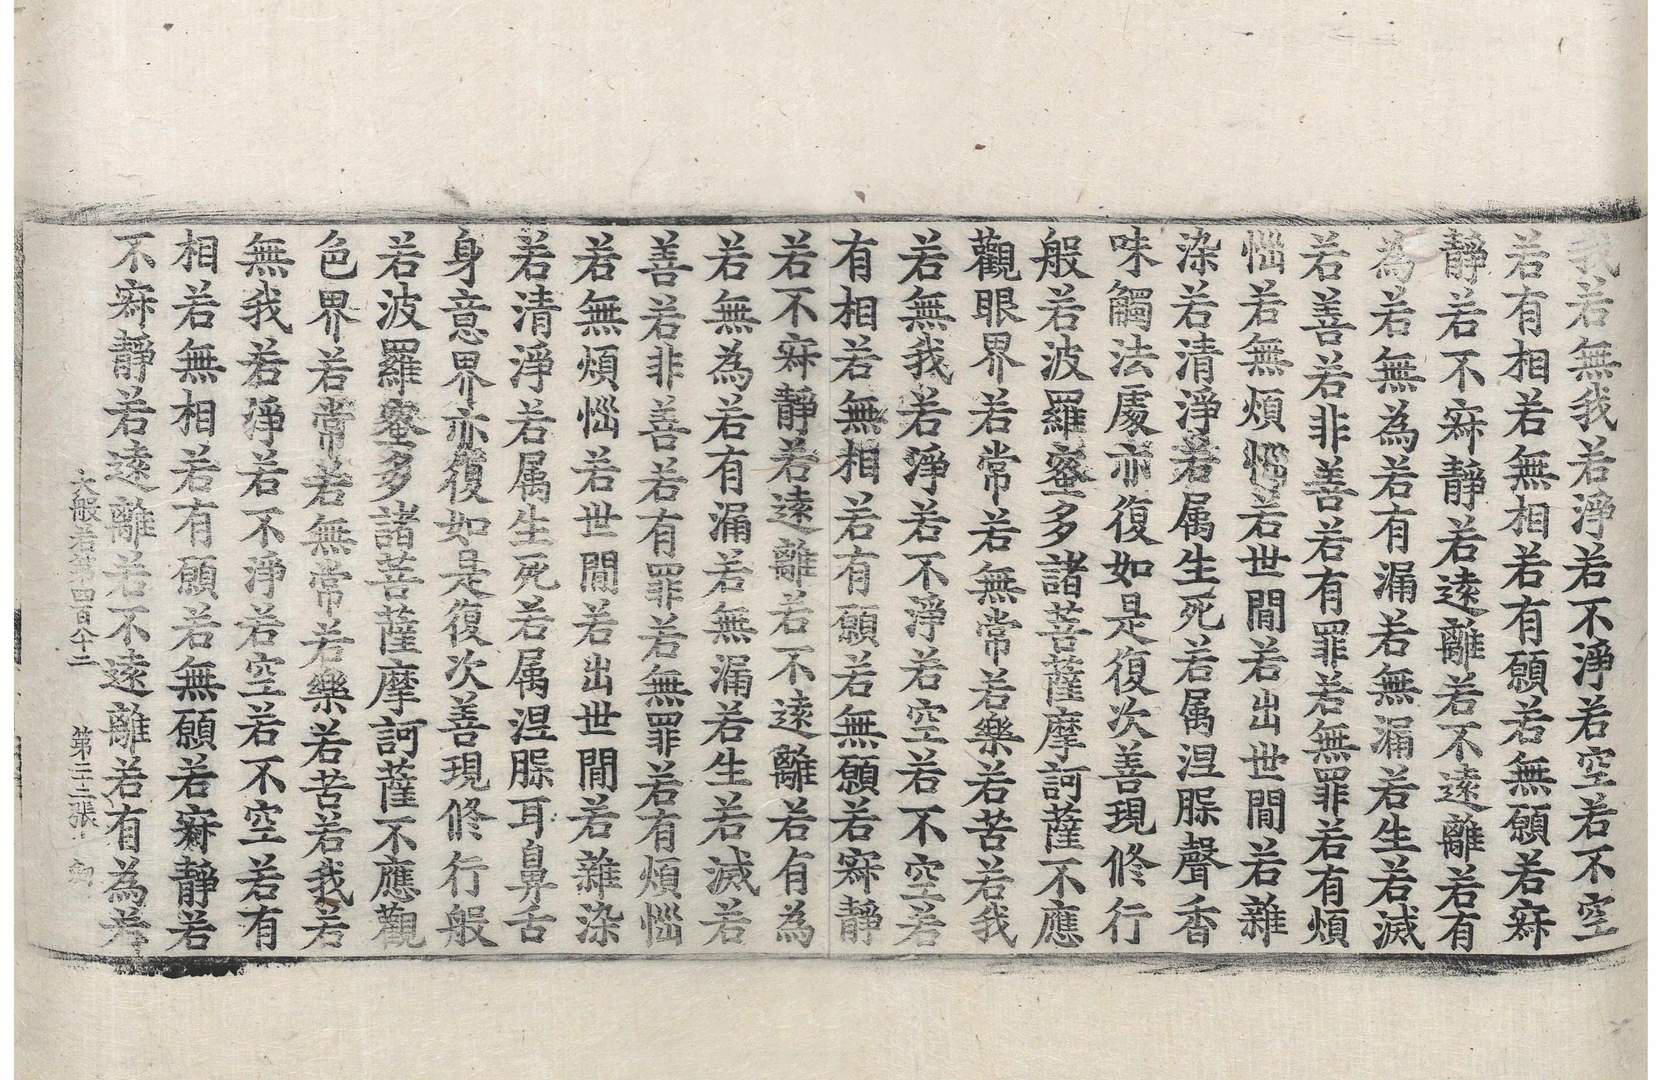 我若無我若淨若不淨若空若不空
若有相若無相若有願若無願若寂
靜若不寂靜若遠離若不遠離若有
為若無為若有漏若無漏若生若滅
若善若非善若有罪若無罪若有煩
惱若無煩惱若世間若出世間若雜
染若清淨若属生死若属涅槃聲香
味觸法處亦復如是復次善現修行
般若波羅蜜多諸菩薩摩訶薩不應
觀眼界若常若無常若樂若苦若我
若無我若淨若不淨若空若不空若
有相若無相若有願若無願若寂靜
若不寂靜若遠離若不遠離若有為
若無為若有漏若無漏若生若滅若
善若非善若有罪若無罪若有煩惱
若無煩惱若世間若出世間若雜染
若清淨若属生死若属涅槃耳鼻舌
身意界亦復如是復次善現修行般
若波羅蜜多諸菩薩摩訶薩不應觀
色界若常若無常若樂若苦若我若
無我若淨若不淨若空若不空若有
相若無相若有願若無願若寂靜若
不寂靜若遠離若不遠離若有為若
大般若第四百 第 張